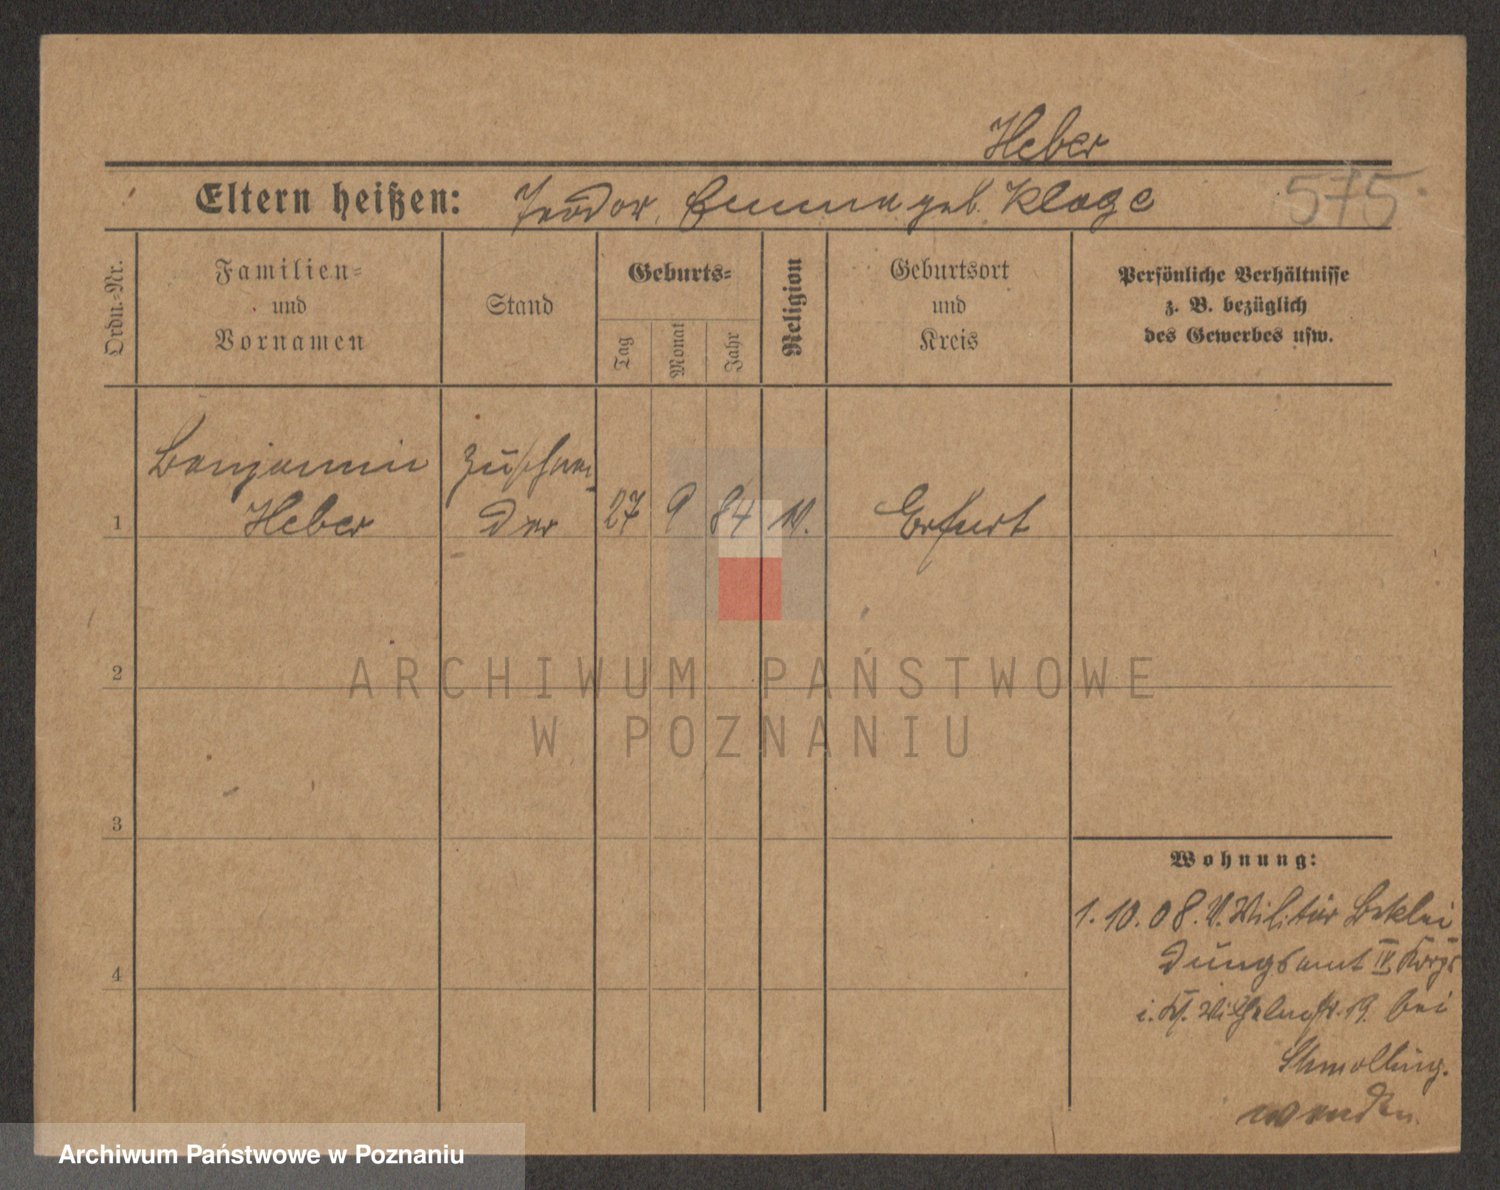 Heber
Eltern heißen: Teodor, Emma geb. Kloge
575
Ordn.-Nr.
Familien-
und
Vornamen
Stand
Geburts-
Tag
Monat
Jahr
Religion
Geburtsort
und
Kreis
Persönliche Verhältnisse
z. B. bezüglich
des Gewerbes usw.
Benjamin
Heber
Zuschnei
der
1
27 9 84
Erfurt
2
3
4
Wohnung:
1.10.08. V. Militär Beklei
dungsamt IV Korps
Wilhelmstr. 19. bei
wenden.
ARCHIWUM PAŃSTWOWE
W POZNANIU
Archiwum Państwowe w Poznaniu